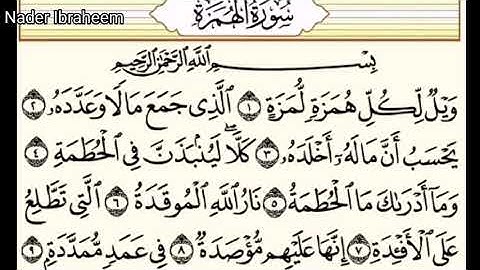 Nader Ibraheem
سُورَةُ الْهُمَزَةِ
بِسْمِ اللَّهِ الرَّحْمَٰنِ الرَّحِيمِ
وَيْلٌ لِّكُلِّ هُمَزَةٍ لُّمَزَةٍ ١ الَّذِي جَمَعَ مَالًا وَعَدَّدَهُ ٢
يَحْسَبُ أَنَّ مَالَهُ أَخْلَدَهُ ٣ كَلَّا لَيُنۢبَذَنَّ فِي الْحُطَمَةِ ٤
وَمَا أَدْرَىٰكَ مَا الْحُطَمَةُ ٥ نَارُ اللَّهِ الْمُوقَدَةُ ٦ الَّتِي تَطَّلِعُ
عَلَى الْأَفْئِدَةِ ٧ إِنَّهَا عَلَيْهِم مُّؤْصَدَةٌ ٨ فِي عَمَدٍ مُّمَدَّدَةٍ ٩